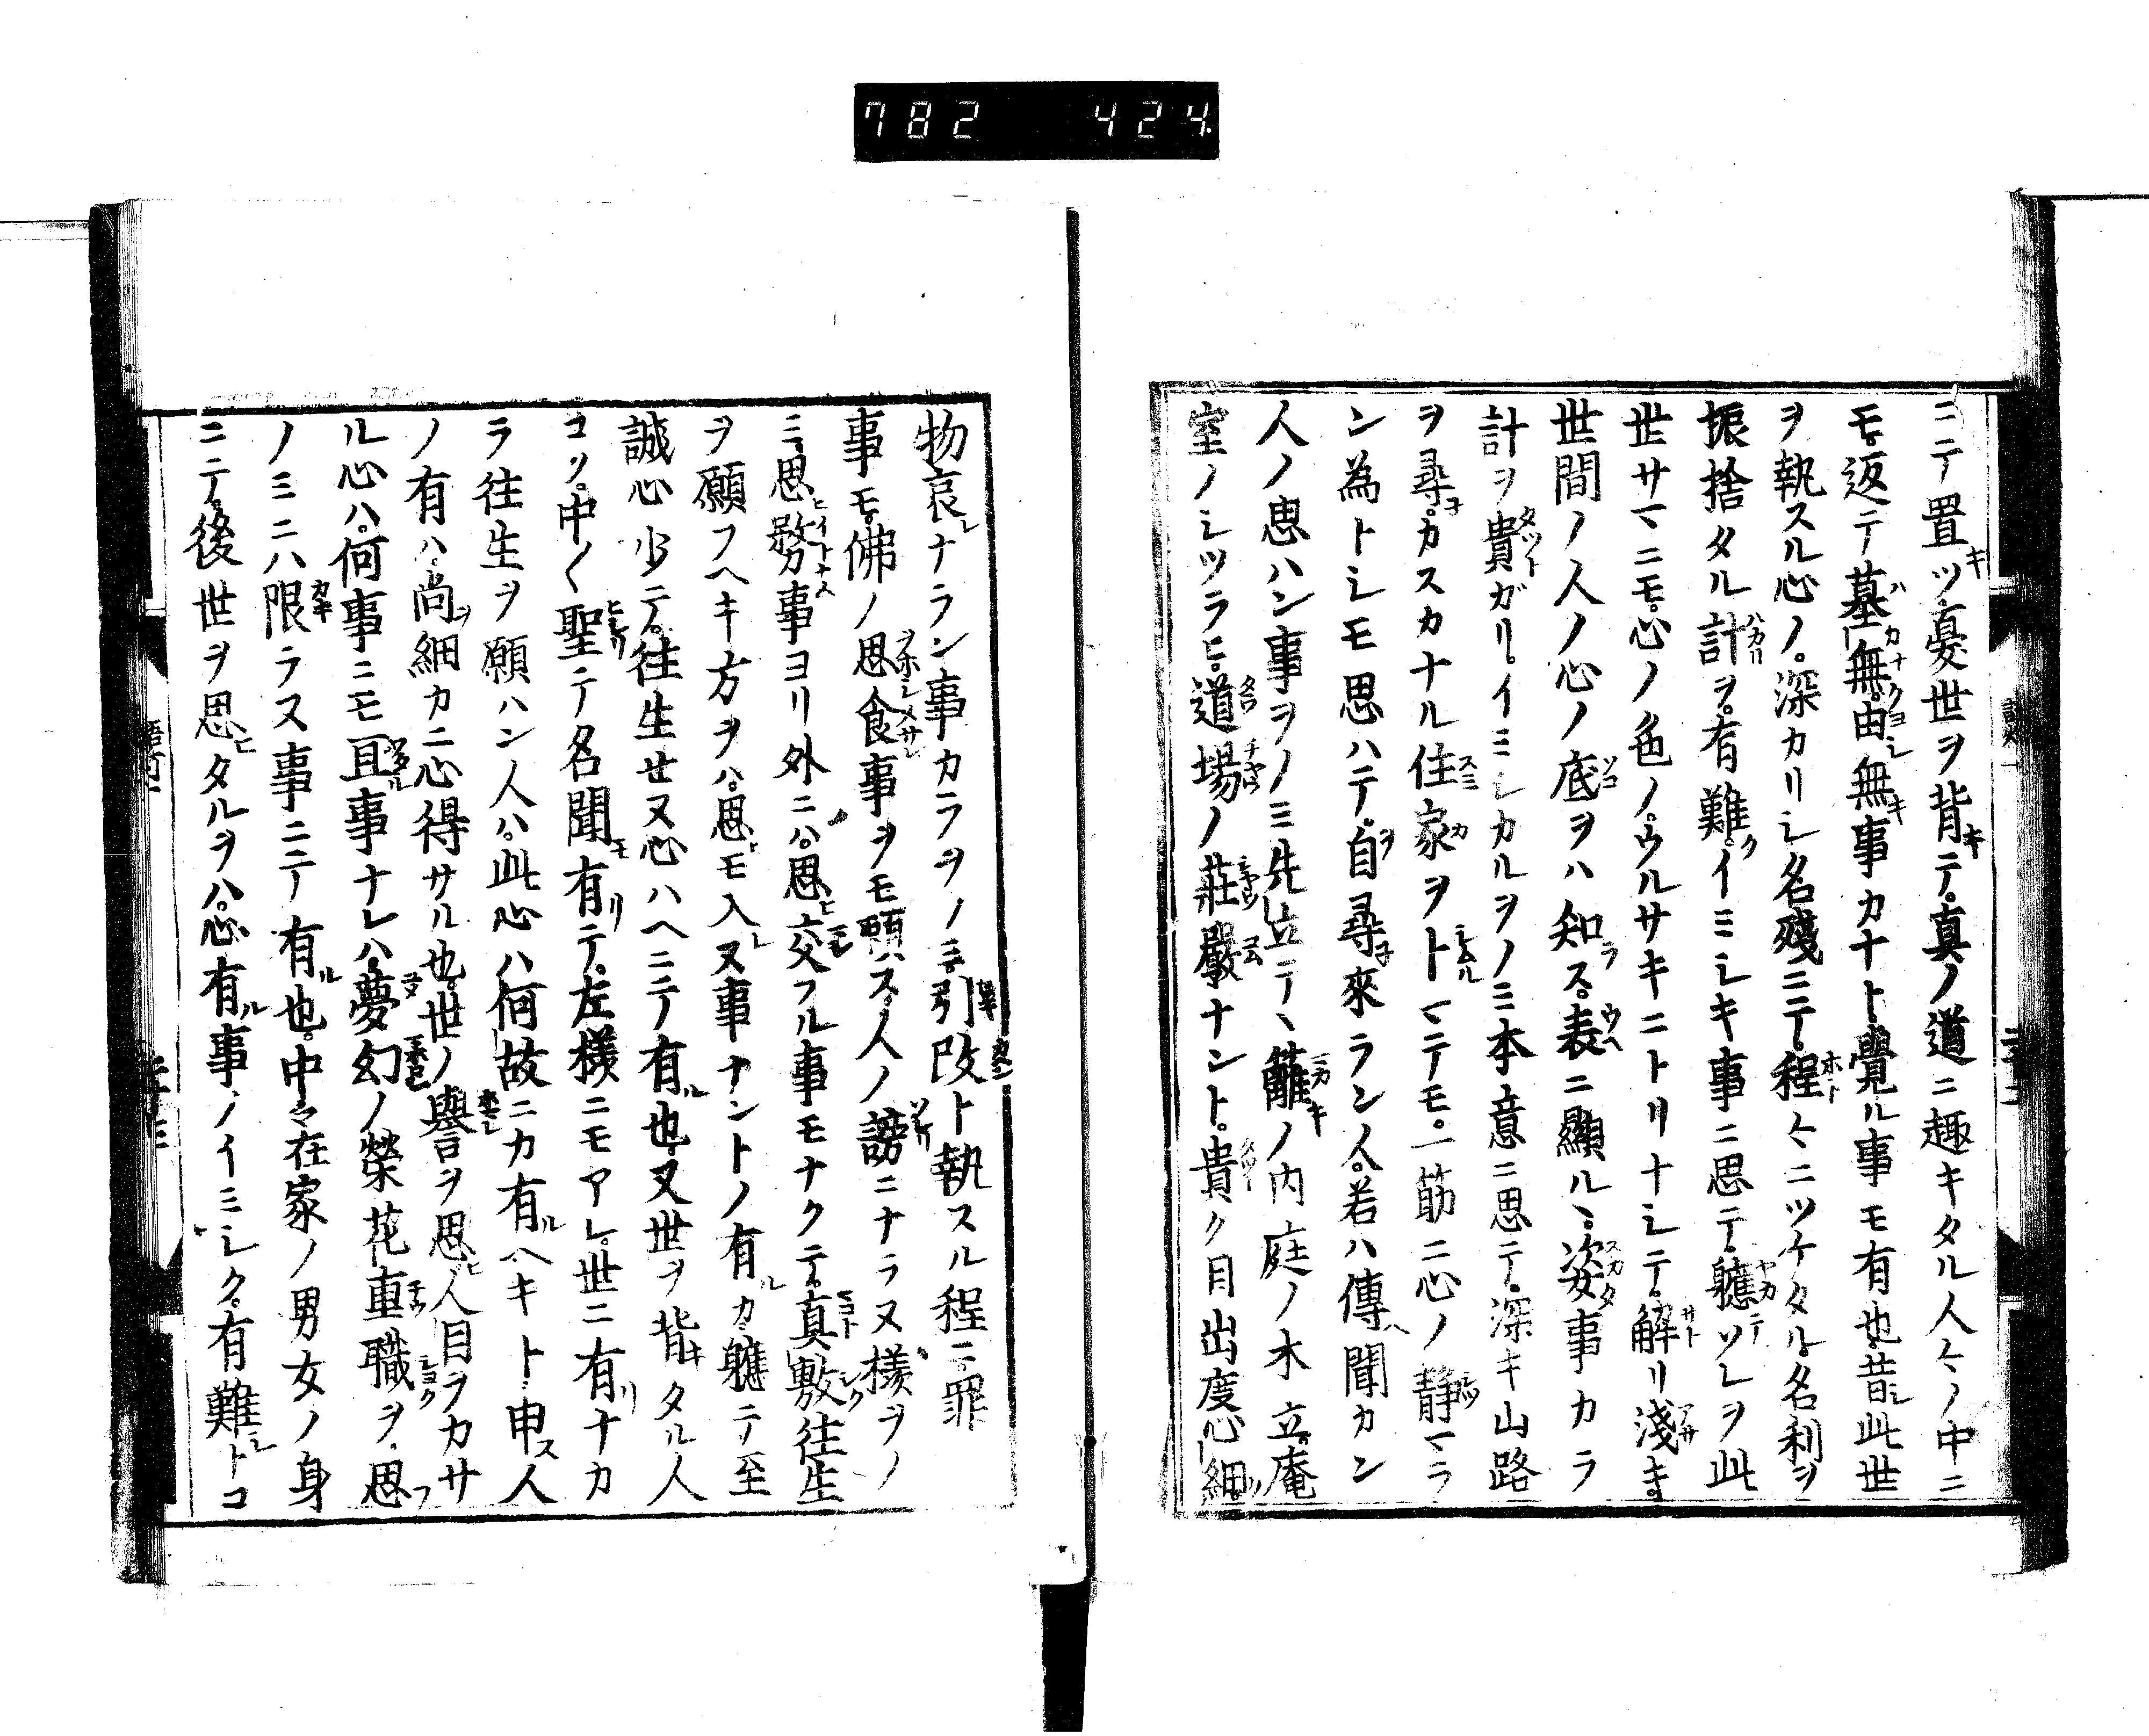 782 424
ニテ置ツ憂世ヲ背テ真ノ道ニ趣キタル人々ノ中ニ
モ返テ墓無由無事カナト覺ル事モ有也昔此世
ヲ執スル心ノ深カリシ名殘ニテ程々ニツケタル名利ヲ
振捨タル計ヲ有難クイミシキ事ニ思テ軈テソレヲ此
世サマニモ心ノ色ノウルサキニトリナシテ解リ淺キ
世間ノ人ノ心ノ底ヲハ知ス表ニ顯ルヽ姿事カラ
計ヲ貴ガリイミシカルヲノミ本意ニ思テ深キ山路
ヲ尋カスカナル住家ヲトマテモ一筋ニ心ノ静マラ
ン為トシモ思ハテ自尋來ラン人若ハ傳聞カン
人ノ思ハン事ヲノミ先立テヽ籬ノ内庭ノ木立庵
室ノシツラヒ道場ノ莊嚴ナント貴ク目出度心細
物哀ナラン事カラヲノミ引改ト執スル程ニ罪
事モ佛ノ思食事ヲモ顧ス人ノ謗ニナラヌ様ヲノ
ミ思務事ヨリ外ニハ思交フル事モナクテ真敷往生
ヲ願フヘキ方ヲハ思モ入ヌ事ナントノ有カ軈テ至
誠心少テ往生セヌ心ハヘニテ有也又世ヲ背タル人
コソ中〱聖テ名聞有テ左様ニモアレ世ニ有ナカ
ラ往生ヲ願ハン人ハ此心ハ何故ニカ有ヘキト申ス人
ノ有ハ尚細カニ心得サル也世ノ譽ヲ思人目ヲカサ
ル心ハ何事ニモ亘事ナレハ夢幻ノ榮花重職ヲ思フ
ノミニハ限ラス事ニテ有也中々在家ノ男女ノ身
ニテ後世ヲ思タルヲハ心有事ノイミシク有難トコ